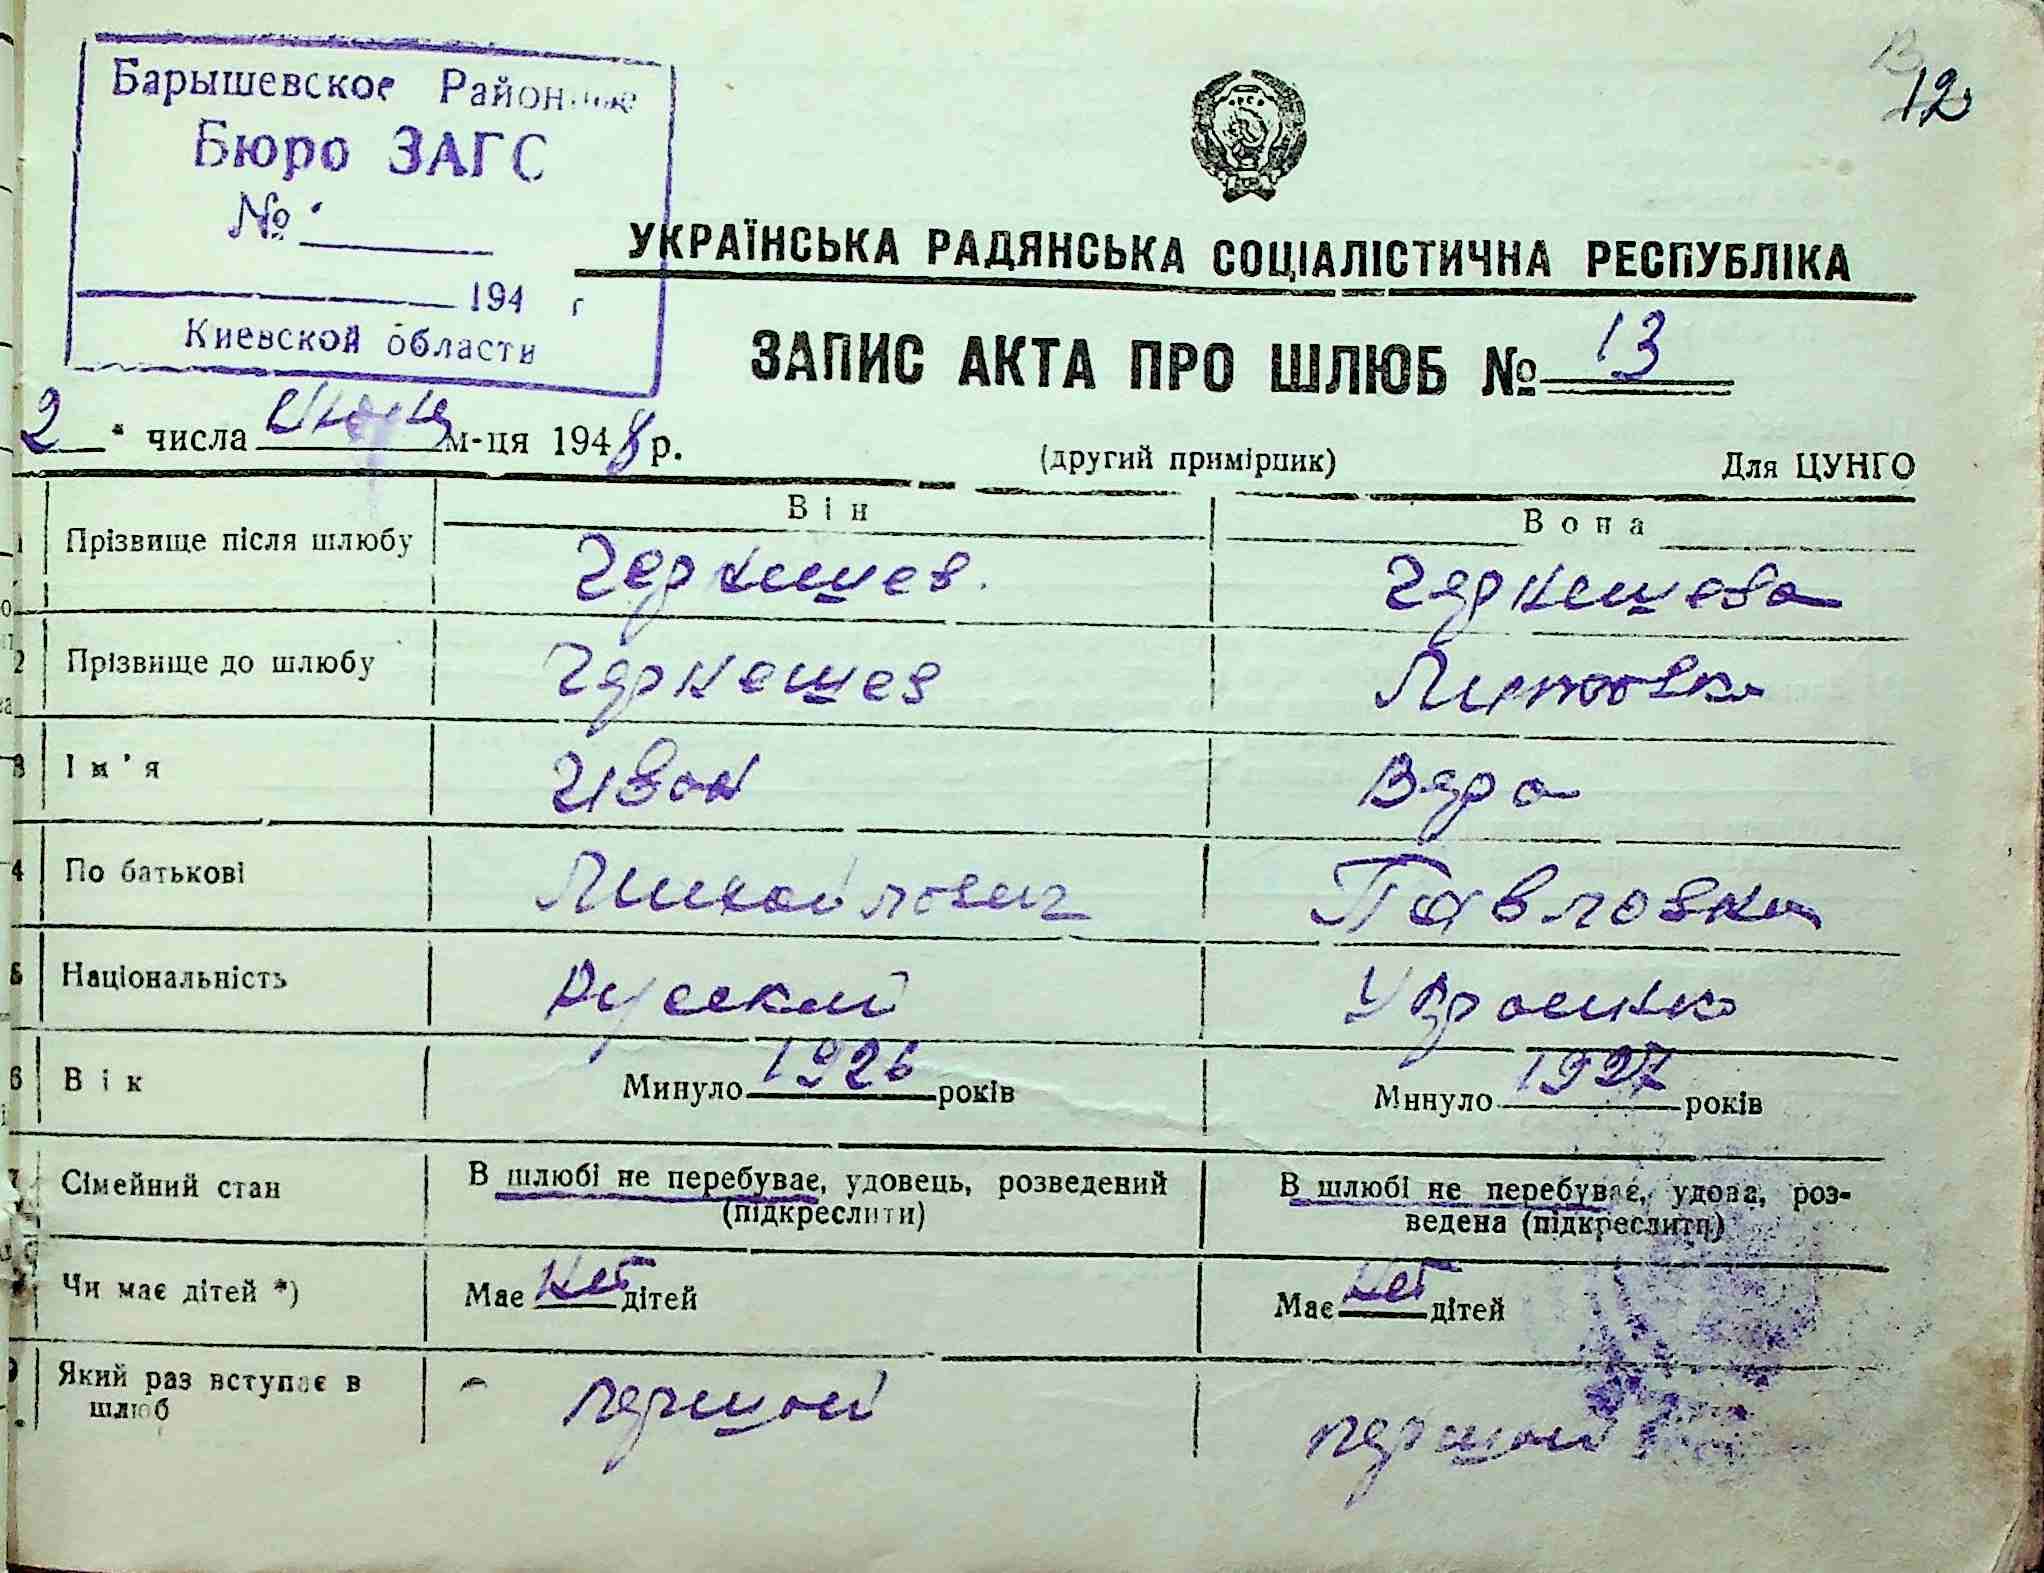 12
Барышевское Районное
Бюро ЗАГС
№
194 г
Киевской области
УКРАЇНСЬКА РАДЯНСЬКА СОЦІАЛІСТИЧНА РЕСПУБЛІКА
ЗАПИС АКТА ПРО ШЛЮБ № 13
2 " числа м-ця 1948 р.
(другий примірник) Для ЦУНГО
Він Вона
1 Прізвище після шлюбу Черкешев. Черкешева
2 Прізвище до шлюбу Черкешев
3 Ім'я Иван Вера
4 По батькові Михайлович Павловна
5 Національність Русский Украинка
6 Вік Минуло 1926 років Минуло 1927 років
7 Сімейний стан В шлюбі не перебуває, удовець, розведений В шлюбі не перебуває, удова, роз-
(підкреслити) ведена (підкреслити)
Чи має дітей *) Має нет дітей Має нет дітей
Який раз вступає в
шлюб першой першой